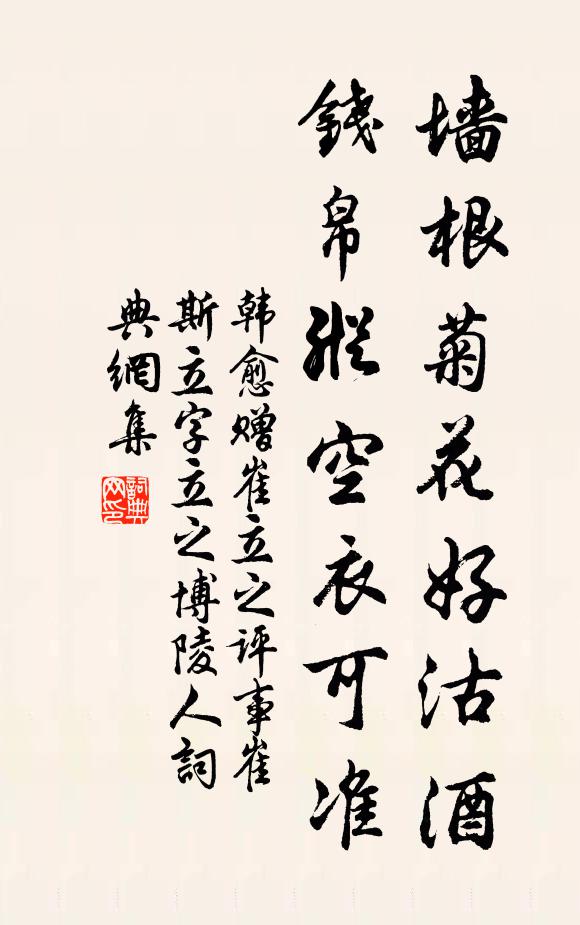 墙根菊花好沽酒
錢帛縱空衣可准
韩愈赠崔立之评事崔
斯立字立之博陵人詞
典網集
詞典网印